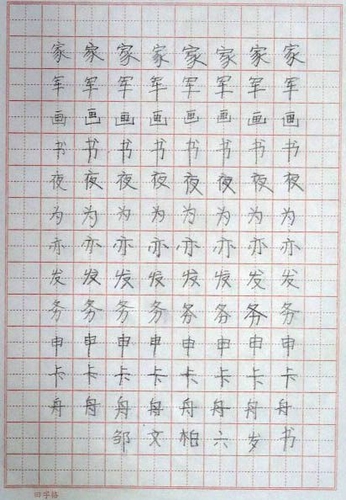 家家家家家家家家
军军军军军军军军
画画画画画画画画
书书书书书书书书
夜夜夜夜夜夜夜夜
为为为为为为为为
亦亦亦亦亦亦亦亦
发发发发发发发发
务务务务务务务务
申申申申申申申申
卡卡卡卡卡卡卡卡
舟舟舟舟舟舟舟舟
邹文柏六岁书